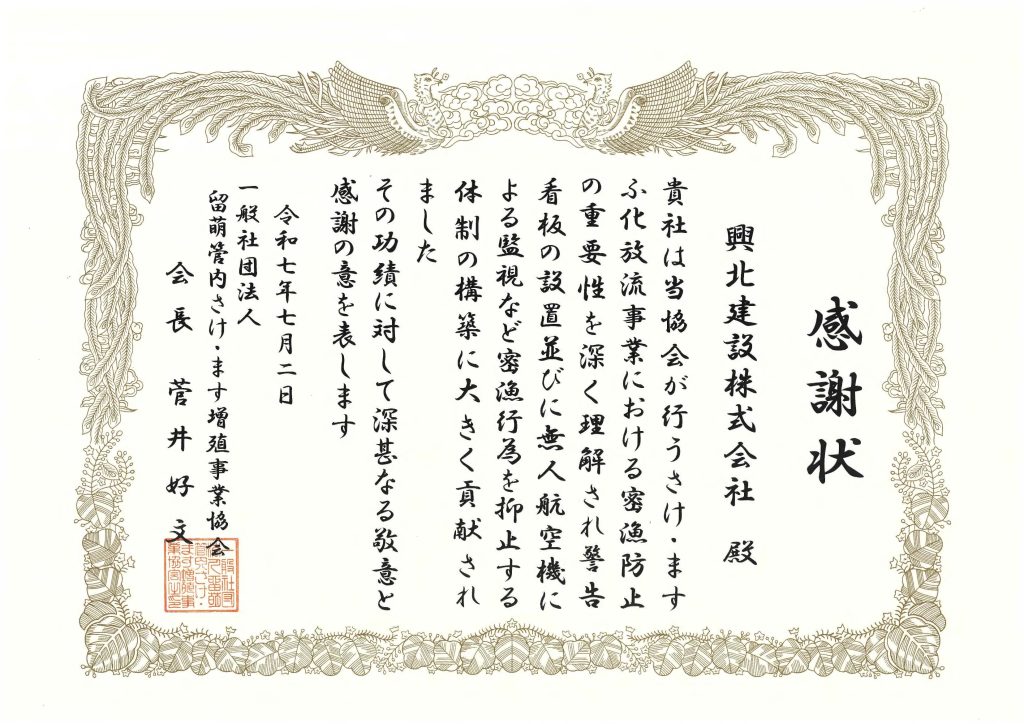 感謝状
興北建設株式会社 殿
貴社は当協会が行うさけ・ます
ふ化放流事業における密漁防止
の重要性を深く理解され警告
看板の設置並びに無人航空機に
よる監視など密漁行為を抑止する
体制の構築に大きく貢献され
ました
その功績に対して深甚なる敬意と
感謝の意を表します
令和七年七月二日
一般社団法人
留萌管内さけ・ます増殖事業協会
会長 菅井好文